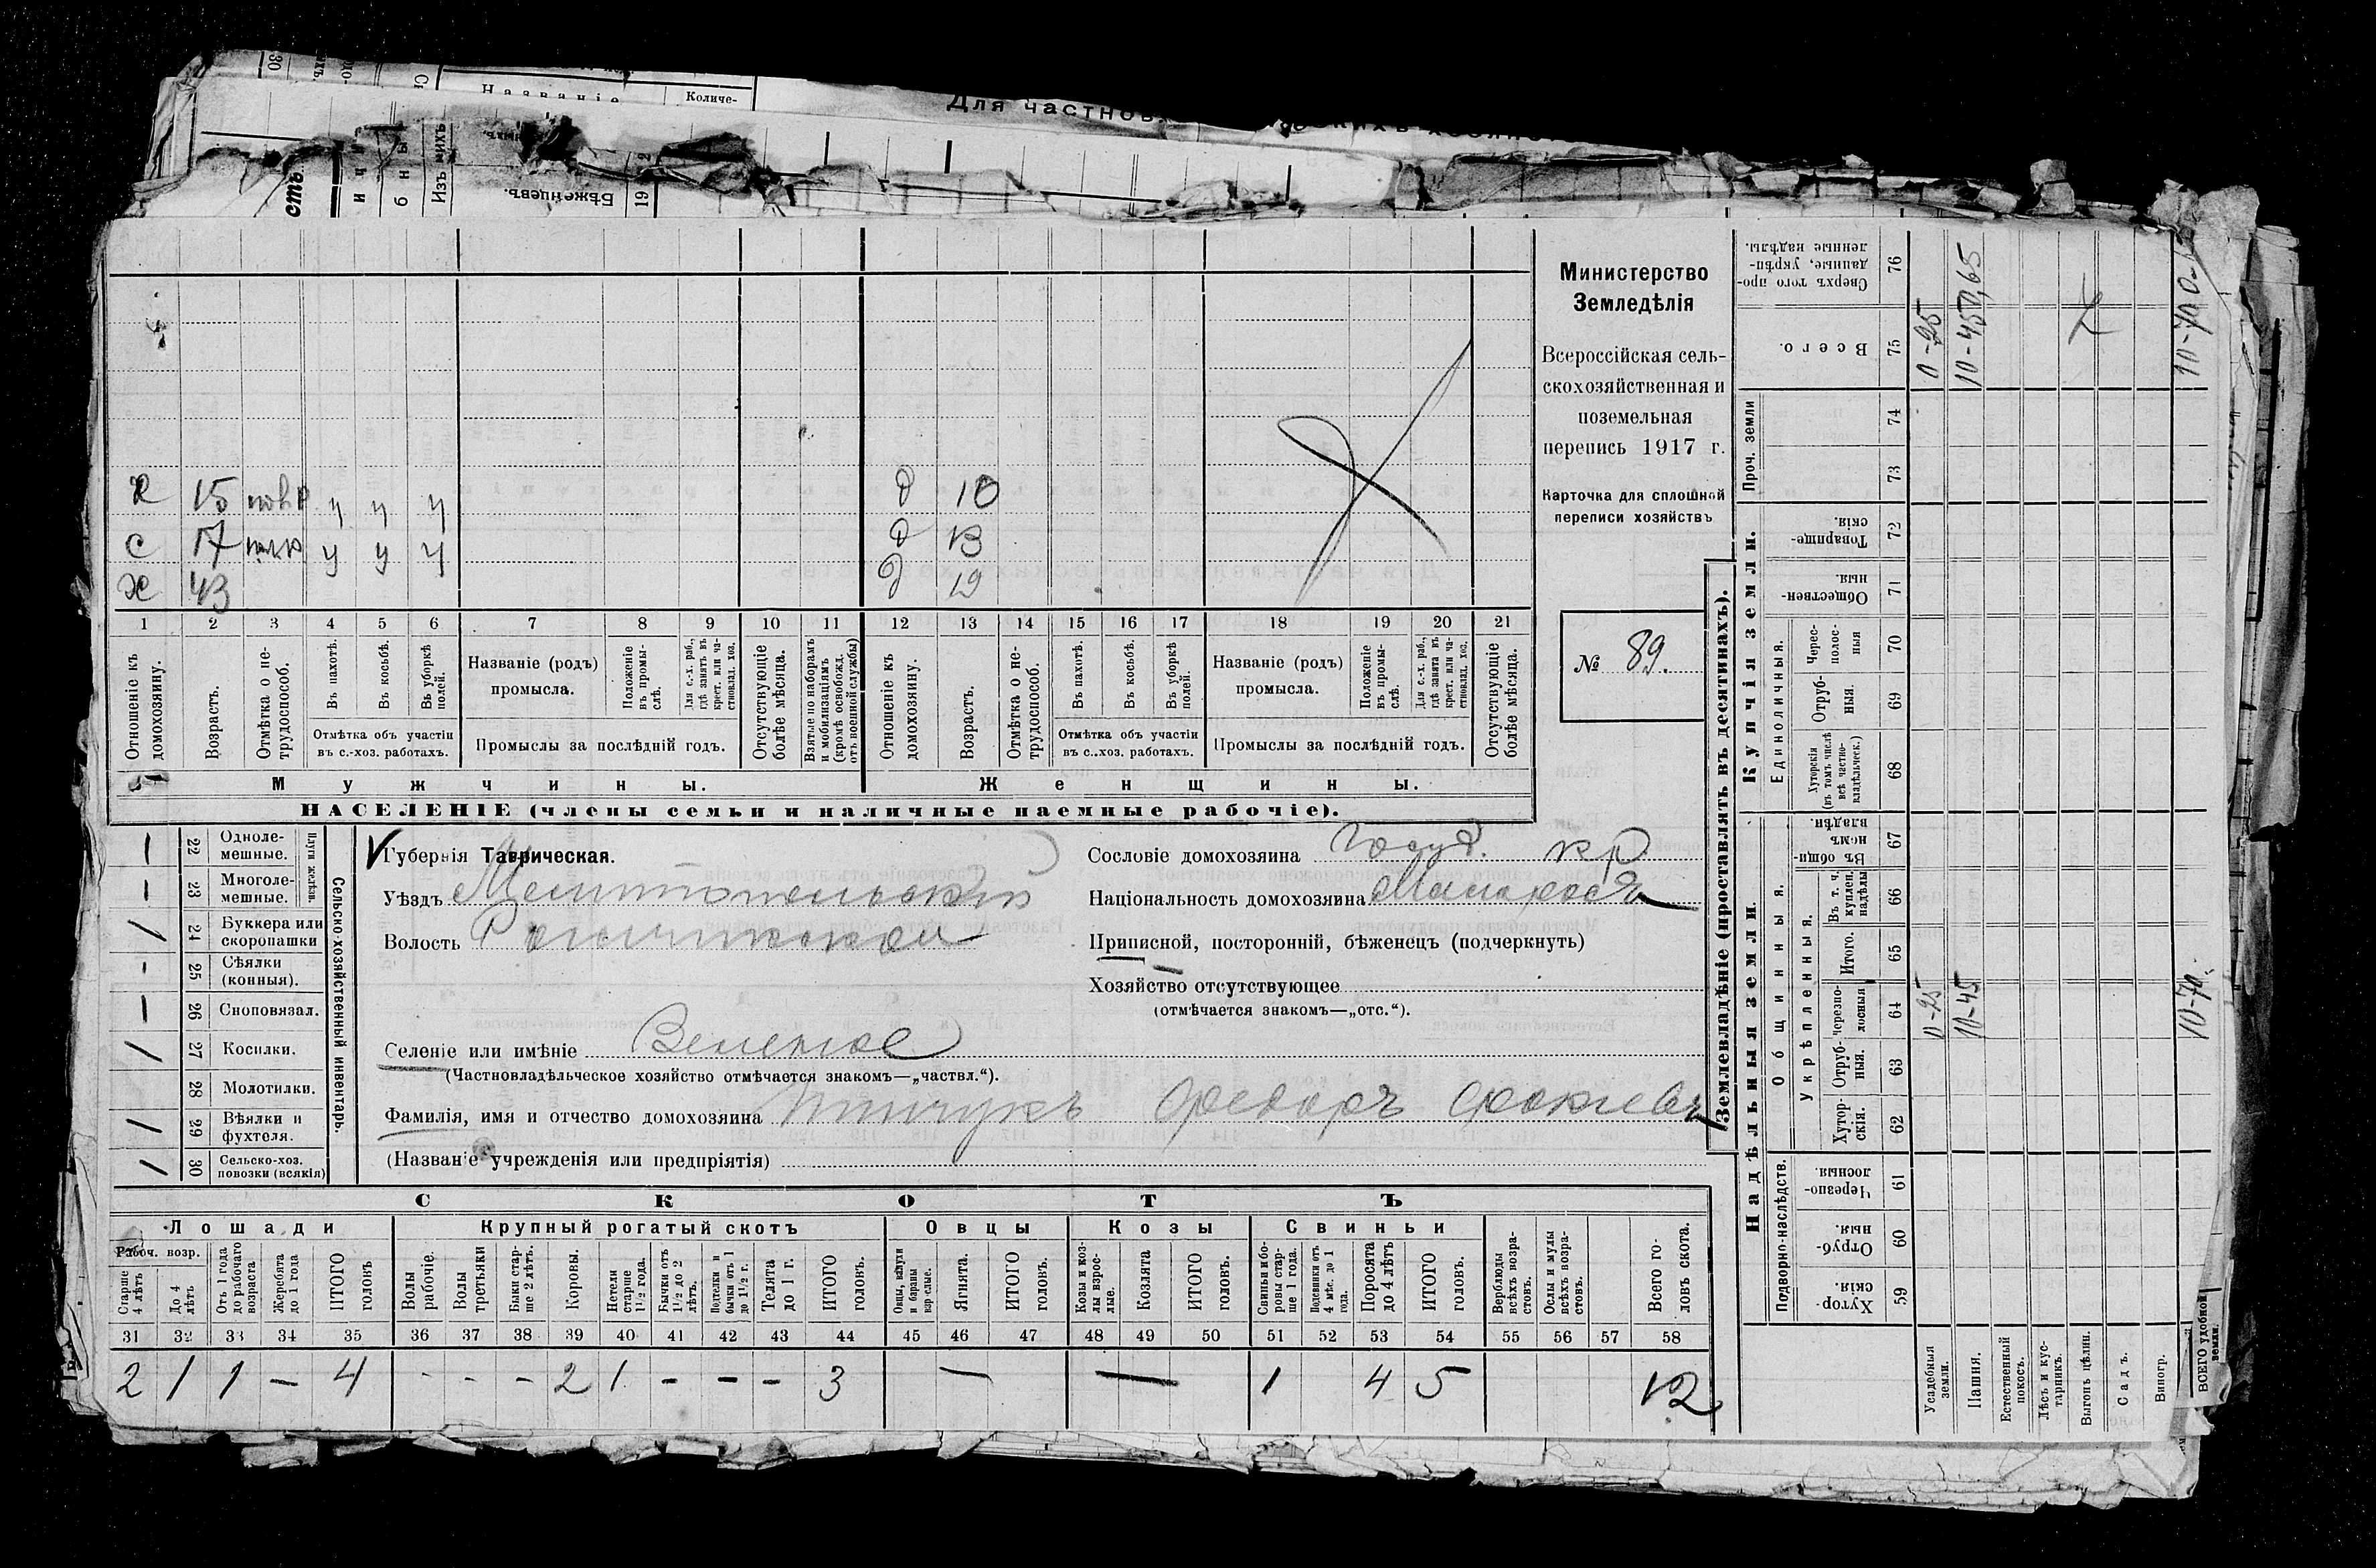 Названіе
Количе-
Для частнов
Бѣженцевъ.
Изъ нихъ
Х 15 у у у д 10
С 17 у у у д 13
Х 43 д 19
1 2 3 4 5 6 7 8 9 10 11 12 13 14 15 16 17 18 19 20 21
Отношеніе къ домохозяину.
Возрастъ.
Отмѣтка о не-
трудоспособ.
Въ пахотѣ.
Въ косьбѣ.
Въ уборкѣ полей.
Отмѣтка объ участіи
въ с.-хоз. работахъ.
Названіе (родъ)
промысла.
Положеніе въ промы-
слѣ.
Для с.-х. раб., гдѣ занятъ въ крест. или ча-
стновлад. хоз.
Промыслы за послѣдній годъ.
Отсутствующіе болѣе мѣсяца.
Взятые по наборамъ и мобилизаціямъ (кромѣ освобожд. отъ военной службы)
Отношеніе къ домохозяину.
Возрастъ.
Отмѣтка о не-
трудоспособ.
Въ пахотѣ.
Въ косьбѣ.
Въ уборкѣ полей.
Отмѣтка объ участіи
въ с.-хоз. работахъ.
Названіе (родъ)
промысла.
Положеніе въ промы-
слѣ.
Для с.-х. раб., гдѣ занята въ крест. или ча-
стновлад. хоз.
Промыслы за послѣдній годъ.
Отсутствующіе болѣе мѣсяца.
Мужчины.
Женщины.
НАСЕЛЕНІЕ (члены семьи и наличные наемные рабочіе).
Министерство
Земледѣлія
Всероссійская сель-
скохозяйственная и
поземельная
перепись 1917 г.
Карточка для сплошной
переписи хозяйствъ
№ 89.
Сельско-хозяйственный инвентарь.
Плуги желѣзн.
— 22 Одноле-
мешные.
— 23 Многоле-
мешные.
/ 24 Буккера или
скоропашки
- 25 Сѣялки
(конныя).
— 26 Сноповязал.
/ 27 Косилки.
28 Молотилки.
/ 29 Вѣялки и
фухтеля.
/ 30 Сельско-хоз.
повозки (всякія)
Губернія Таврическая.
Уѣздъ Мелитопольскій
Волость
Селеніе или имѣніе Зеленое
(Частновладѣльческое хозяйство отмѣчается знакомъ—„частвл.“).
Фамилія, имя и отчество домохозяина Федоръ
(Названіе учрежденія или предпріятія)
Сословіе домохозяина Госуд. кр
Национальность домохозяина Малоросъ
Приписной, посторонній, бѣженецъ (подчеркнуть)
Хозяйство отсутствующее
(отмѣчается знакомъ—„отс.“).
СКОТЪ
Лошади
Крупный рогатый скотъ
Овцы
Козы
Свиньи
Рабоч. возр.
Старше 4 лѣтъ
До 4 лѣтъ
Отъ 1 года до рабочаго возраста
Жеребята до 1 года
ИТОГО головъ
Волы рабочіе.
Волы третьяки
Быки стар-
ше 2 лѣтъ.
Коровы.
Нетели старше 1½ года.
Бычки отъ 1½ до 2 лѣтъ.
Подтелки и бычки отъ 1 до 1½ г.
Телята до 1 г.
ИТОГО головъ.
Овцы, валухи и бараны взрослые.
Ягнята.
ИТОГО головъ.
Козы и коз-
лы взрос-
лые.
Козлята
ИТОГО головъ.
Свиньи и бо-
ровы стар-
ше 1 года.
Подсвинки отъ 4 мѣс. до 1 года.
Поросята до 4 лѣтъ
ИТОГО головъ.
Верблюды всѣхъ возра-
стовъ.
Ослы и мулы всѣхъ возра-
стовъ.
Всего го-
ловъ скота.
31 32 33 34 35 36 37 38 39 40 41 42 43 44 45 46 47 48 49 50 51 52 53 54 55 56 57 58
2 1 1 — 4 - - - 2 1 - - - 3 — — 1 4 5 12
Землевладѣніе (проставлять въ десятинахъ).
Надѣльныя земли.
Купчія земли.
Подворно-наслѣдств.
Общинныя.
Укрѣпленныя.
Единоличныя.
Проч. земли
Хутор-
скія. 59
Отруб-
ныя. 60
Черезпо-
лосныя 61
Хутор-
скія. 62
Отруб-
ныя. 63
Черезпо-
лосныя 64
Итого. 65
Въ т. ч. куплен. надѣлы 66
Въ общин номъ владѣн. 67
Хуторскія (въ томъ числѣ всѣ частно-
владѣльческ.) 68
Отруб-
ныя. 69
Черес-
полос-
ныя 70
Обществен-
ныя. 71
Товарище-
скія. 72
73
74
Всего. 75
Сверхъ того про-
данные, укрѣп-
ленные надѣлы. 76
Усадебныя земли. 0-25 0-25
Пашня. 10-45 10-45
Естественный покосъ.
Лѣсъ и кус-
тарникъ.
Выгонъ цѣлин.
Садъ.
Виногр.
ВСЕГО удобной земли. 10-70 10-70